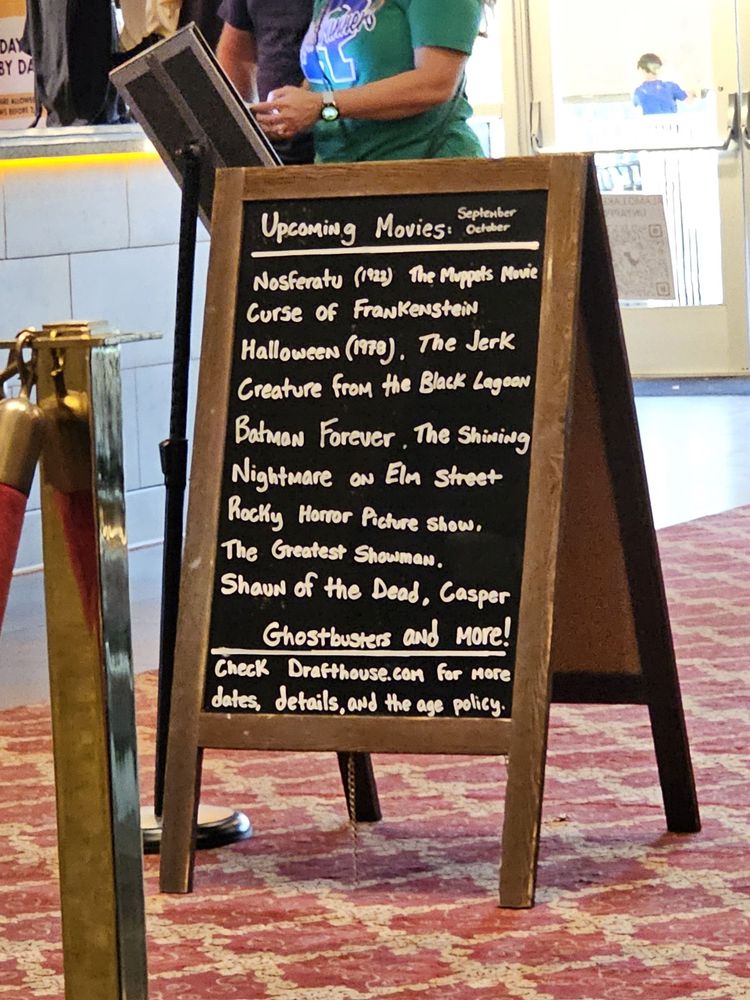 Upcoming Movies: September October
Nosferatu (1922) The Muppets Movie
Curse of Frankenstein
Halloween (1978), The Jerk
Creature from the Black Lagoon
Batman Forever, The Shining
Nightmare on Elm Street
Rocky Horror Picture Show.
The Greatest Showman.
Shaun of the Dead, Casper
Ghostbusters and more!
Check Drafthouse.com for more
dates, details, and the age policy.
DAY
BY DA